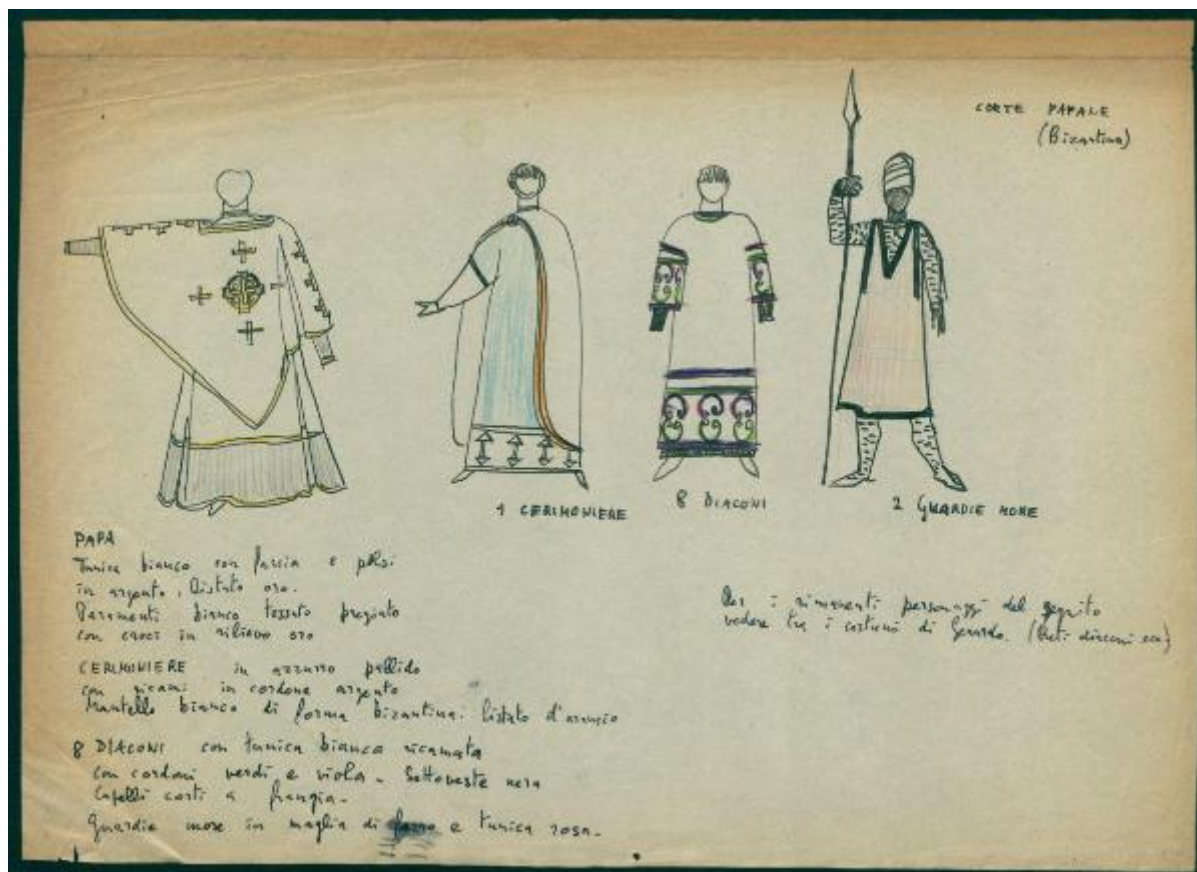 CORTE PAPALE
(Bizantina)
1 CERIMONIERE
8 DIACONI
2 GUARDIE MORE
PAPA
Tunica bianca con fascia e polsi
in argento. Listato oro.
Paramenti bianco tessuto pregiato
con croci in rilievo oro
CERIMONIERE in azzurro pallido
con ricami in cordone argento
Mantello bianco di forma bizantina. listato d'arancio
8 DIACONI con tunica bianca ricamata
con cordoni verdi e viola - Sottoveste nera
Capelli corti a frangia -
Guardie more in maglia di e tunica rosa -
Per i rimanenti personaggi del seguito
vedere tra i costumi di Gerardo. (Preti diaconi ecc)